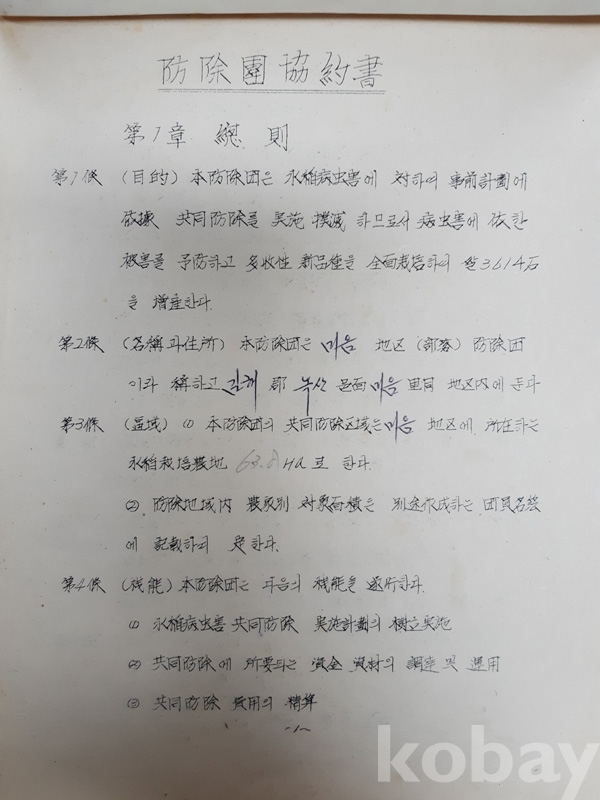 防除團協約書
第1章 總則
第1條 (目的) 本防除団은 水稻病虫害에 対하여 事前計劃에
依據 共同防除를 実施 撲滅 하므로서 病虫害에 依한
被害를 予防하고 多收性 新品種을 全面栽培하여 쌀3614石
을 增産한다.
第2條 (名稱과住所) 本防除団은 미음 地区 (部落) 防除団
이라 稱하고 김해 郡 녹산 邑面 미음 里洞 地区内에 둔다
第3條 (區域) ① 本防除団의 共同防除区域은 미음 地区에 所在하는
水稻栽培農地 63.8 HA로 한다.
② 防除地域内 農家別 対象面積은 別途作成하는 団員名簿
에 記載하여 定한다.
第4條 (機能) 本防除団은 다음의 機能을 遂行한다.
① 水稻病虫害共同防除 実施計劃의 樹立実施
② 共同防除에 所要되는 資金 資材의 調達 및 運用
③ 共同防除 費用의 精算
-1-
kobay